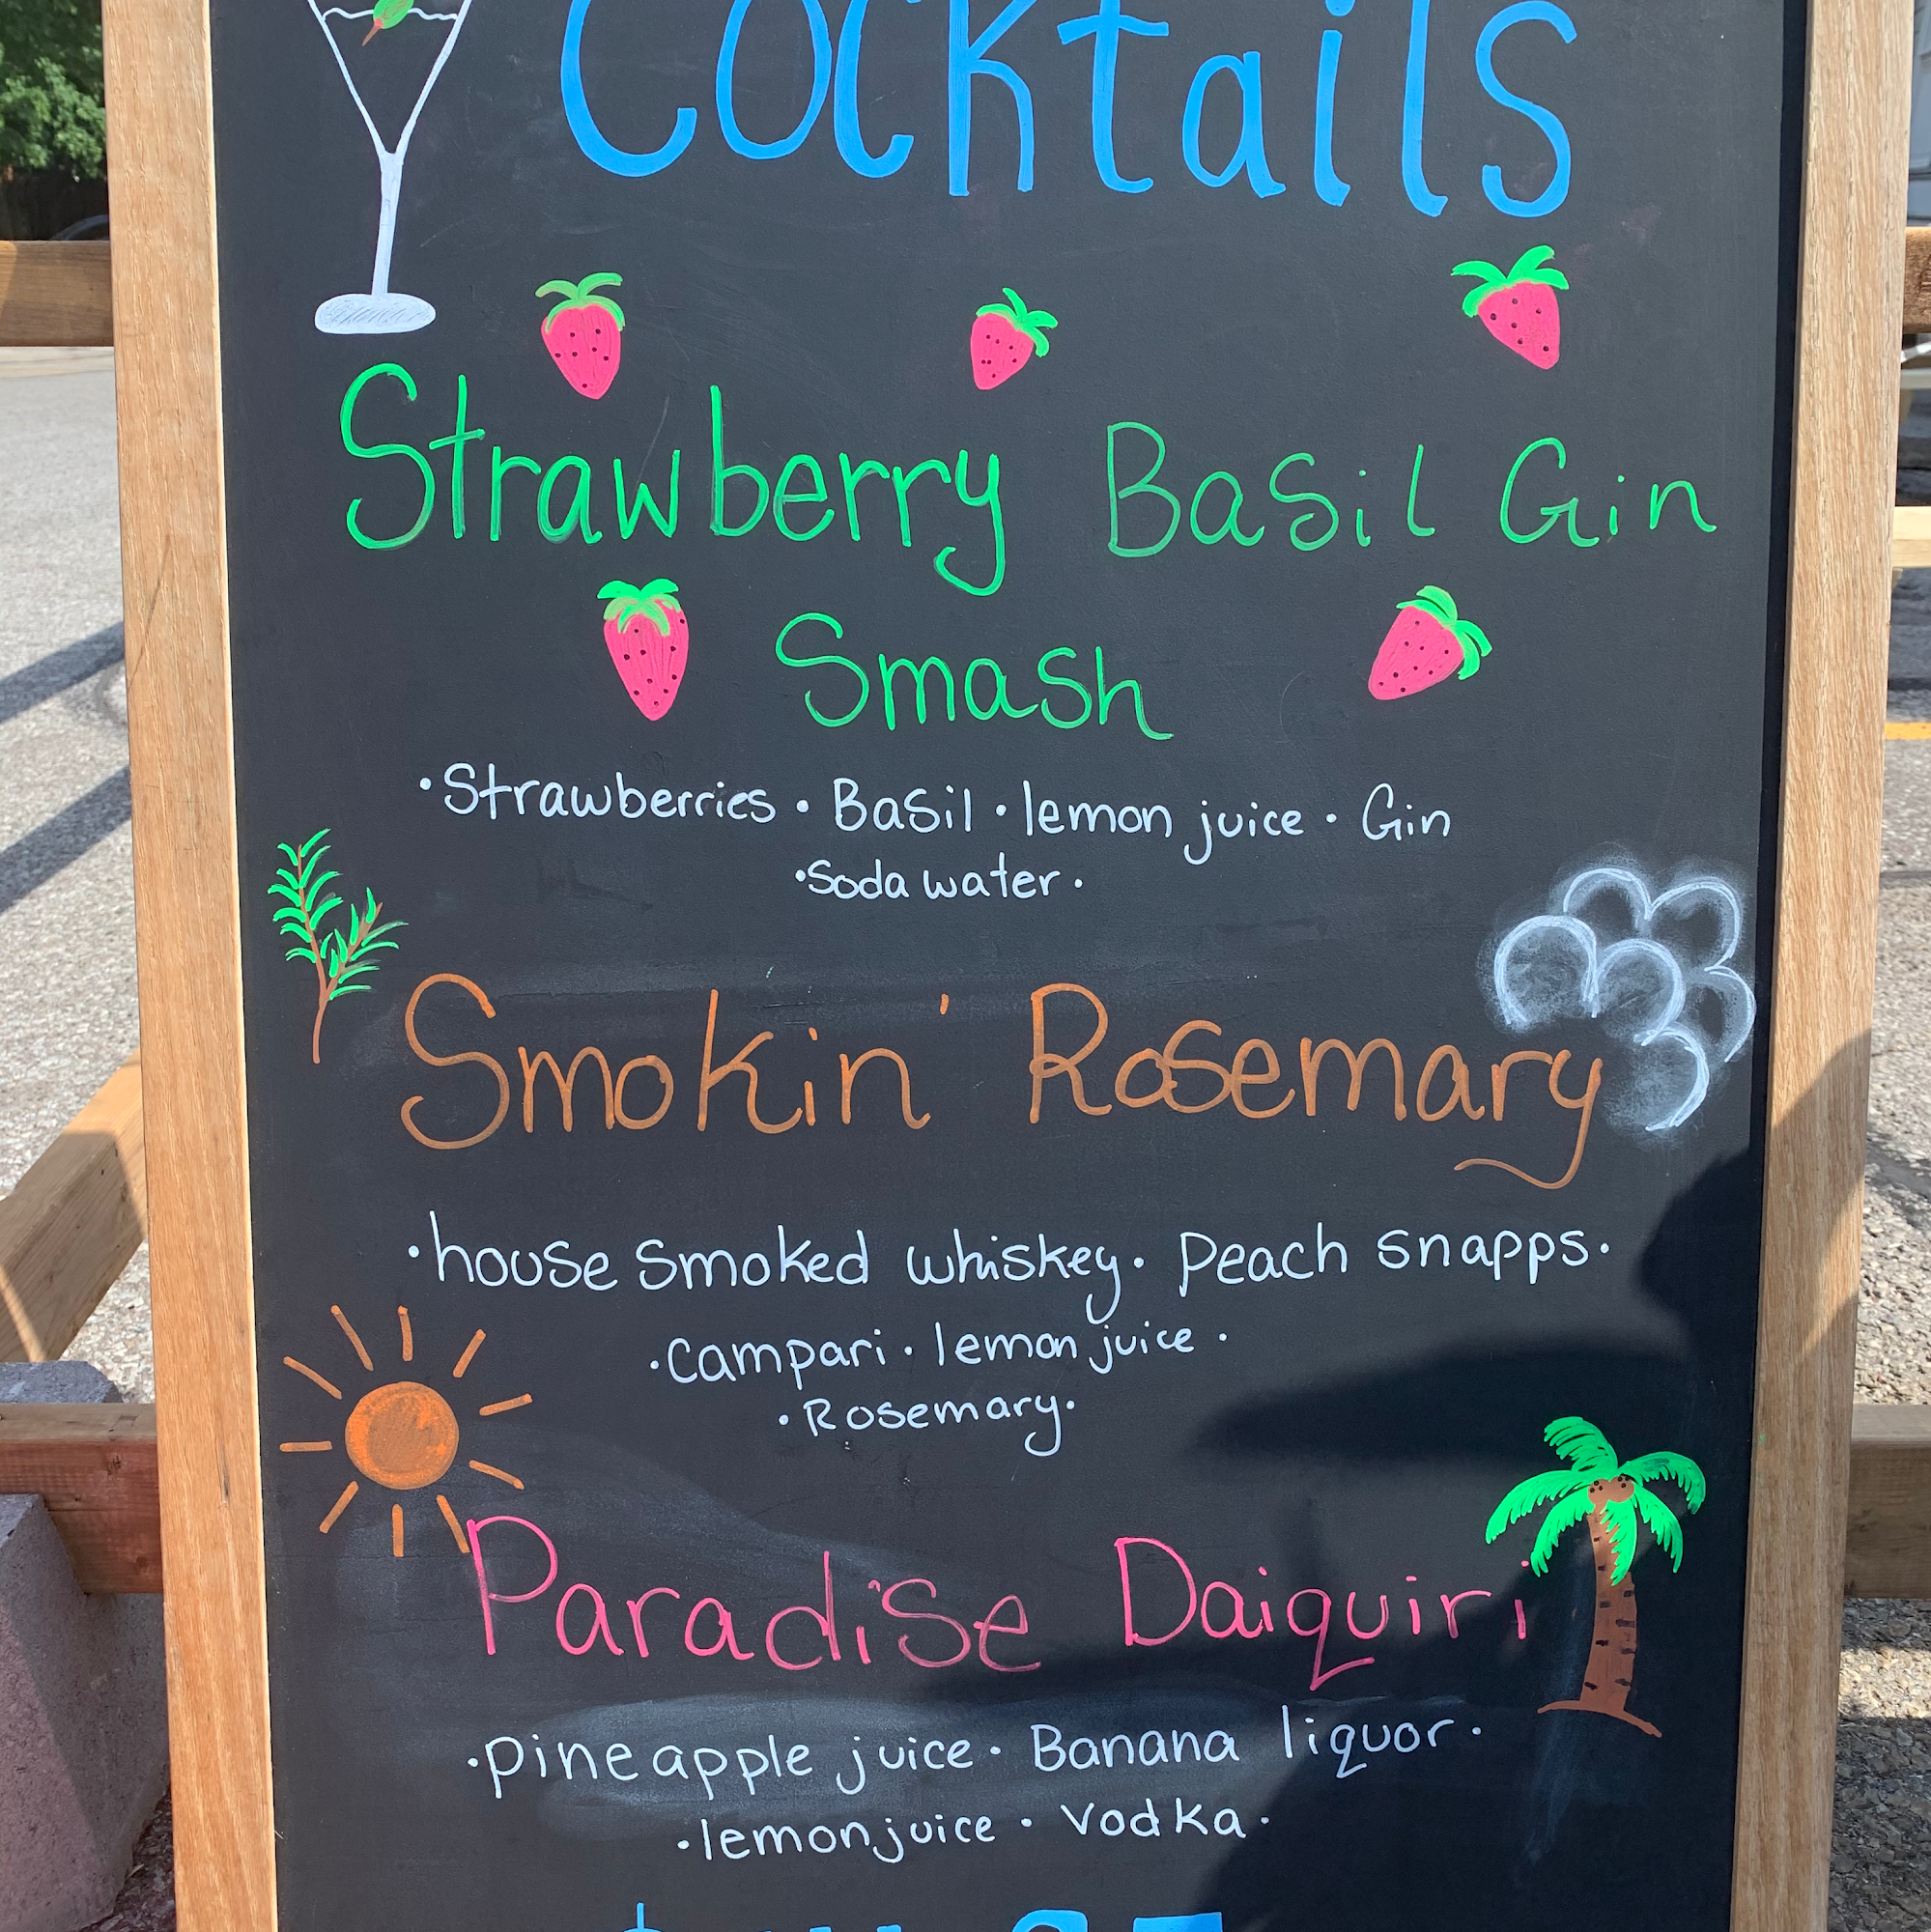 Cocktails
Strawberry Basil Gin
Smash
•Strawberries • Basil • lemon juice • Gin
•Soda water •
Smokin' Rosemary
•house smoked whiskey • Peach snapps •
•Campari • lemon juice •
•Rosemary•
Paradise Daiquiri
•pineapple juice • Banana liquor •
•lemon juice • Vodka •